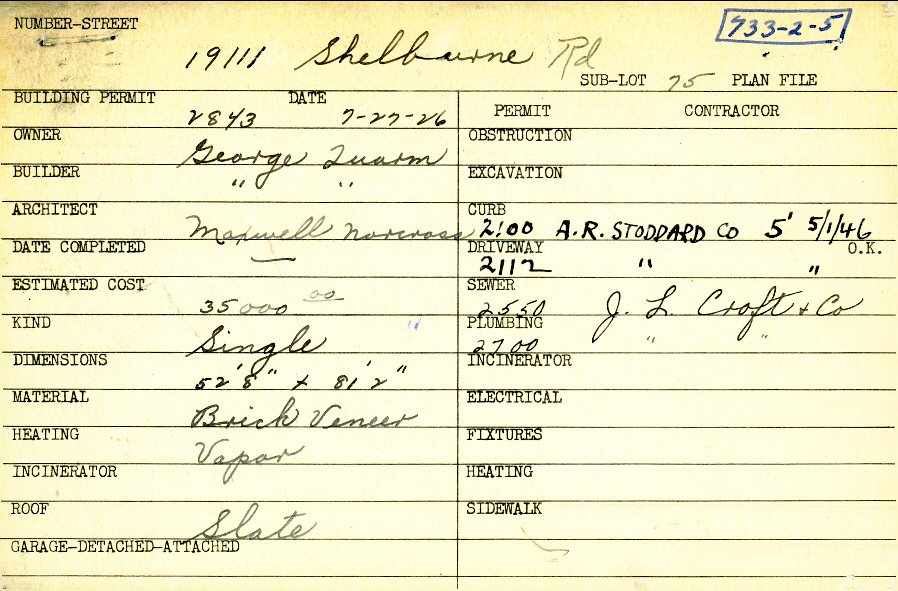 NUMBER-STREET
733-2-5
19111 Shelburne Rd
SUB-LOT 75 PLAN FILE
BUILDING PERMIT 2843 DATE 7-27-26
OWNER George Quarm
BUILDER " "
ARCHITECT Maxwell Norcross
DATE COMPLETED —
ESTIMATED COST 35000 00
KIND Single
DIMENSIONS 52' 8" x 81' 2"
MATERIAL Brick Veneer
HEATING Vapor
INCINERATOR
ROOF Slate
GARAGE-DETACHED-ATTACHED
PERMIT CONTRACTOR
OBSTRUCTION
EXCAVATION
CURB 2100 A.R. STODDARD CO 5' 5/1/46
DRIVEWAY 2112 " " O.K.
SEWER 2550 J. L. Croft & Co
PLUMBING 2700 " "
INCINERATOR
ELECTRICAL
FIXTURES
HEATING
SIDEWALK